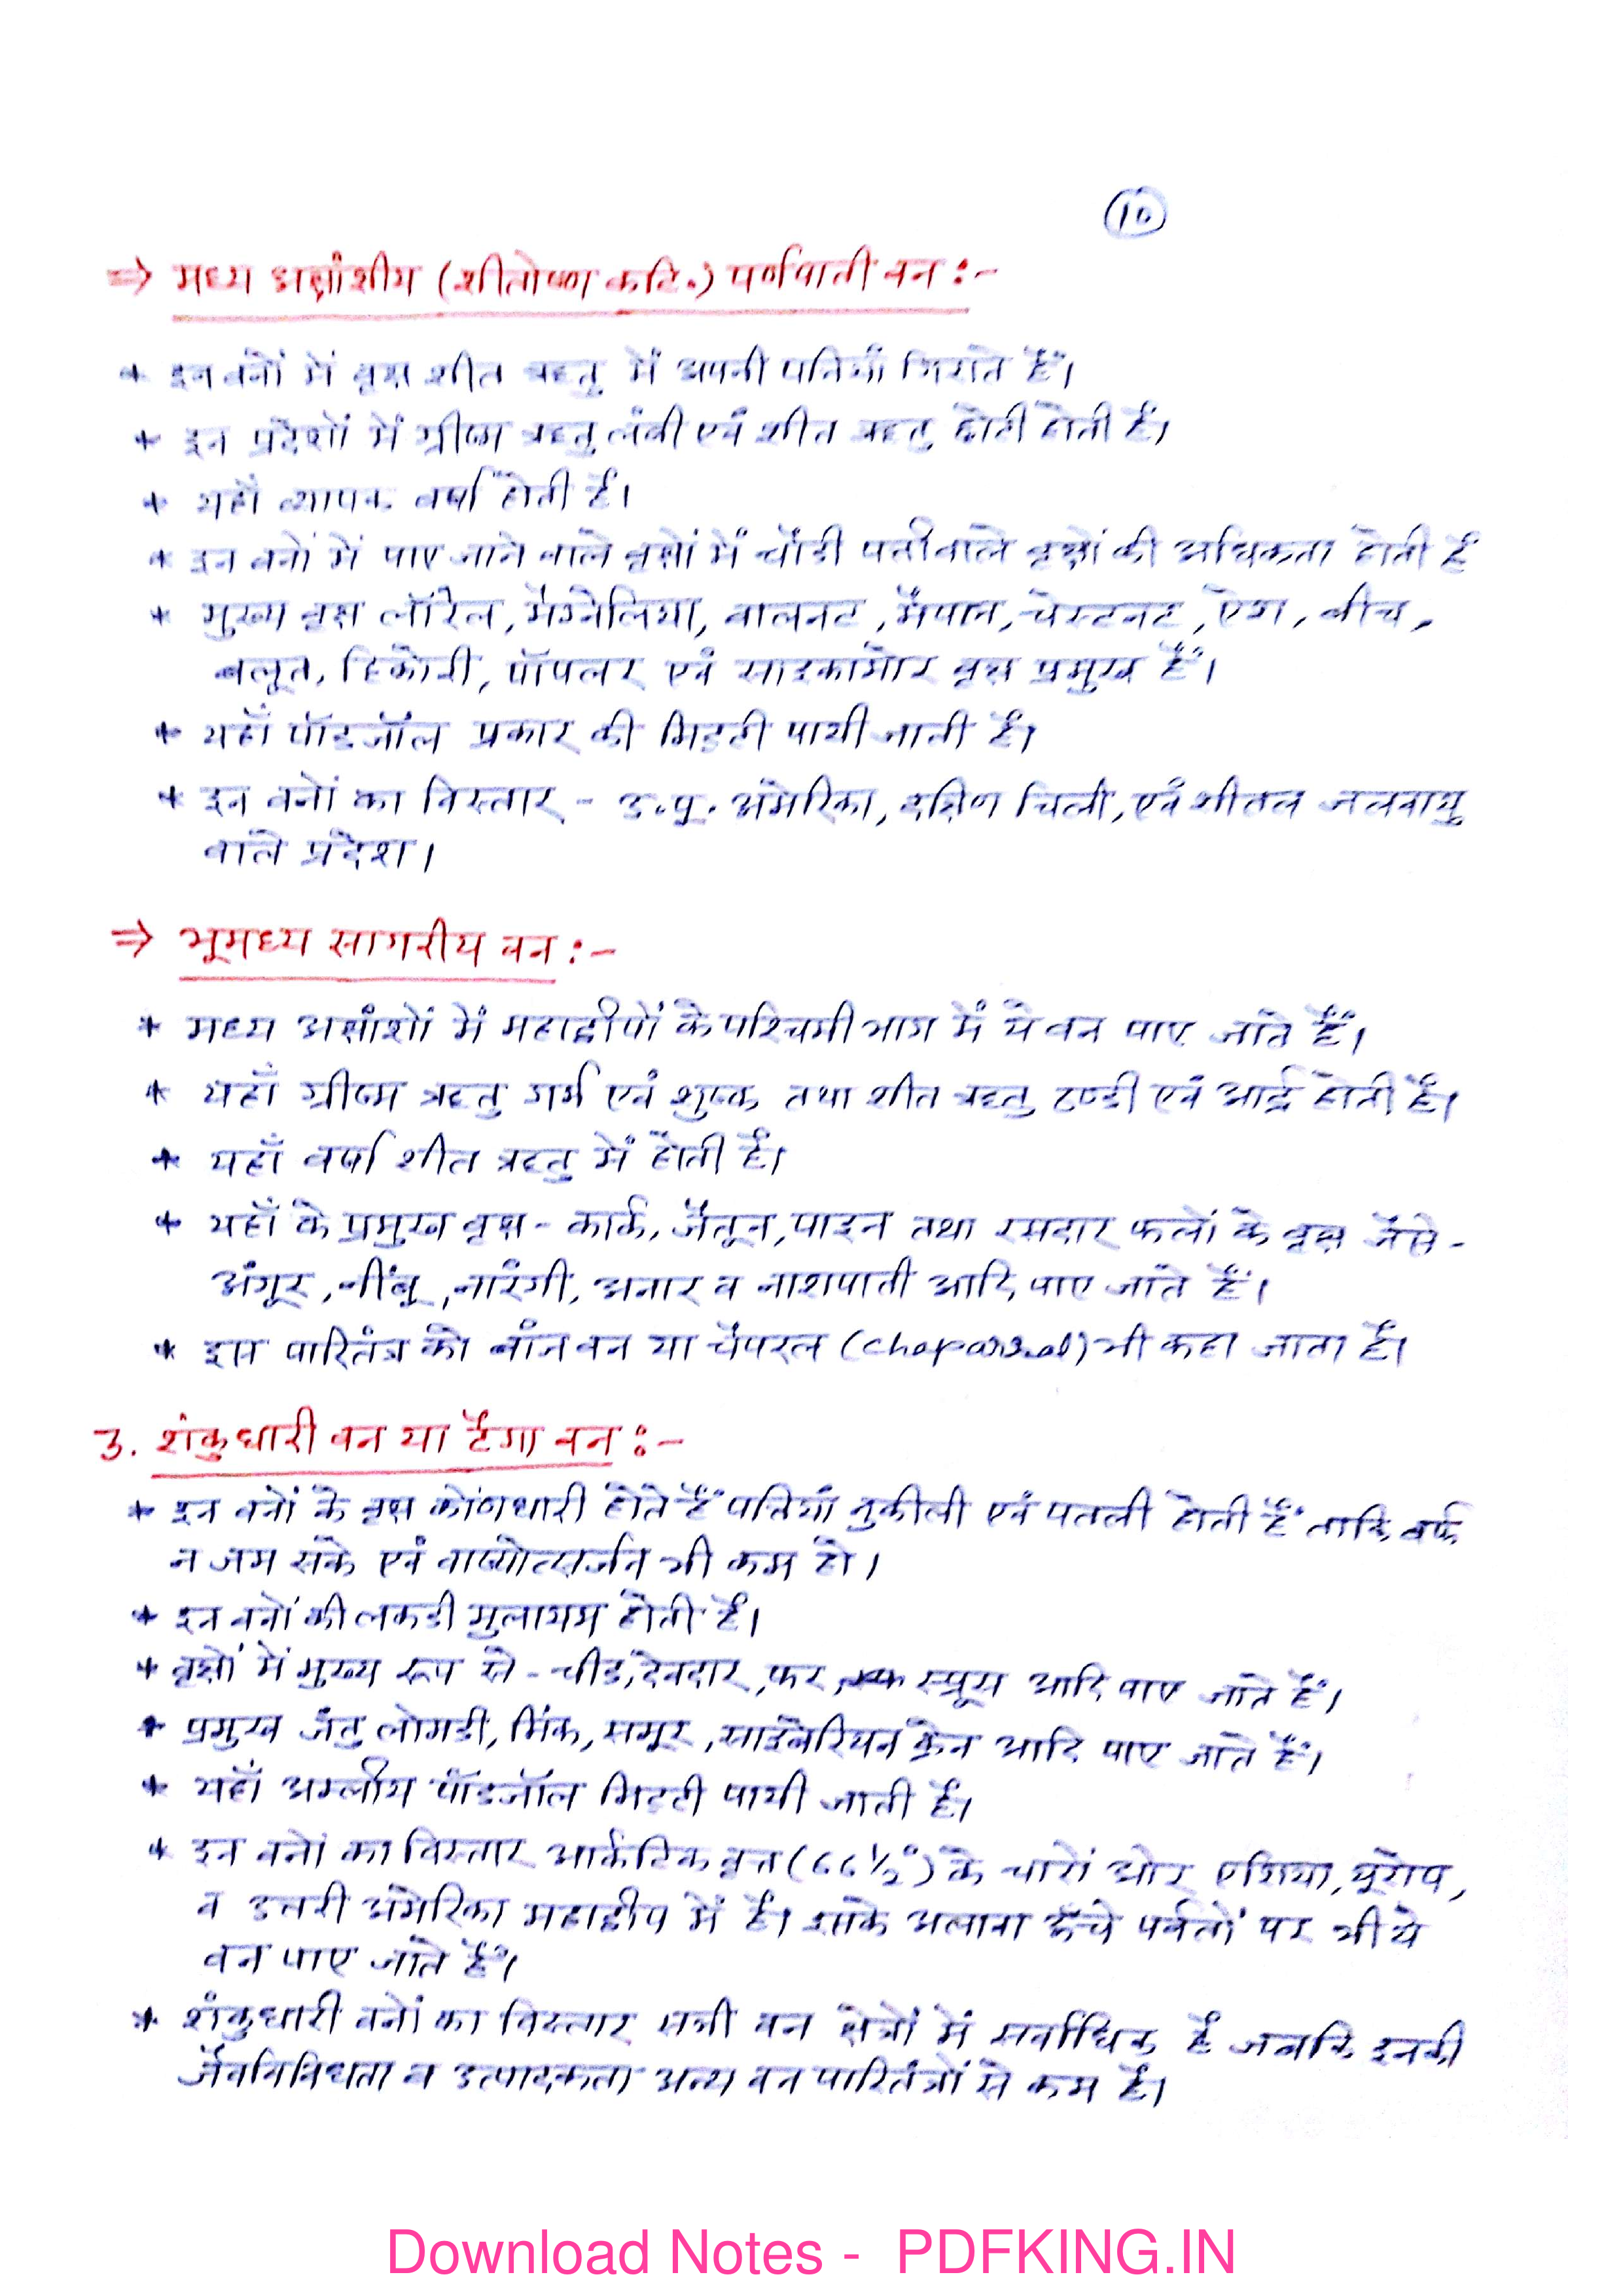 10
⇒ मध्य अक्षांशीय (शीतोष्ण कटि.) पर्णपाती वन :-
* इन वनों में वृक्ष शीत ऋतु में अपनी पत्तियाँ गिराते हैं।
* इन प्रदेशों में ग्रीष्म ऋतु लंबी एवं शीत ऋतु छोटी होती है।
* यहाँ व्यापक वर्षा होती है।
* इन वनों में पाए जाने वाले वृक्षों में चौडी पत्ती वाले वृक्षों की अधिकता होती है
* मुख्य वृक्ष लॉरेल, मैग्नेलिया, वालनट, मैपाल, चेस्टनट, ऐश, बीच,
बलूत, हिकोरी, पॉपलर एवं साइकामोर वृक्ष प्रमुख हैं।
* यहाँ पॉडजॉल प्रकार की मिट्टी पायी जाती है।
* इन वनों का विस्तार - उ.पू. अमेरिका, दक्षिण चिली, एवं शीतल जलवायु
वाले प्रदेश।
⇒ भूमध्य सागरीय वन :-
* मध्य अक्षांशों में महाद्वीपों के पश्चिमी भाग में ये वन पाए जाते हैं।
* यहाँ ग्रीष्म ऋतु गर्म एवं शुष्क तथा शीत ऋतु ठण्डी एवं आर्द्र होती है।
* यहाँ वर्षा शीत ऋतु में होती है।
* यहाँ के प्रमुख वृक्ष - कार्क, जैतून, पाइन तथा रसदार फलों के वृक्ष जैसे -
अंगूर, नींबू, नारंगी, अनार व नाशपाती आदि पाए जाते हैं।
* इस पारितंत्र को बांज वन या चैपरल (Chaparral) भी कहा जाता है।
3. शंकुधारी वन या टैगा वन :-
* इन वनों के वृक्ष कोंणधारी होते हैं पत्तियाँ नुकीली एवं पतली होती हैं ताकि बर्फ
न जम सके एवं वाष्पोत्सर्जन भी कम हो।
* इन वनों की लकडी मुलायम होती है।
* वृक्षों में मुख्य रूप से - चीड, देवदार, फर, स्प्रूस आदि पाए जाते हैं।
* प्रमुख जंतु लोमडी, मिंक, समूर, साइबेरियन क्रेन आदि पाए जाते हैं।
* यहाँ अम्लीय पॉडजॉल मिट्टी पायी जाती है।
* इन वनों का विस्तार आर्कटिक वृत्त (66½°) के चारों ओर एशिया, यूरोप,
व उत्तरी अमेरिका महाद्वीप में है। अलावा ऊँचे पर्वतों पर भी ये
वन पाए जाते हैं।
* शंकुधारी वनों का विस्तार सभी वन क्षेत्रों में सर्वाधिक है जबकि इनकी
जैवविविधता व उत्पादकता अन्य वन पारितंत्रों से कम है।
Download Notes - PDFKING.IN